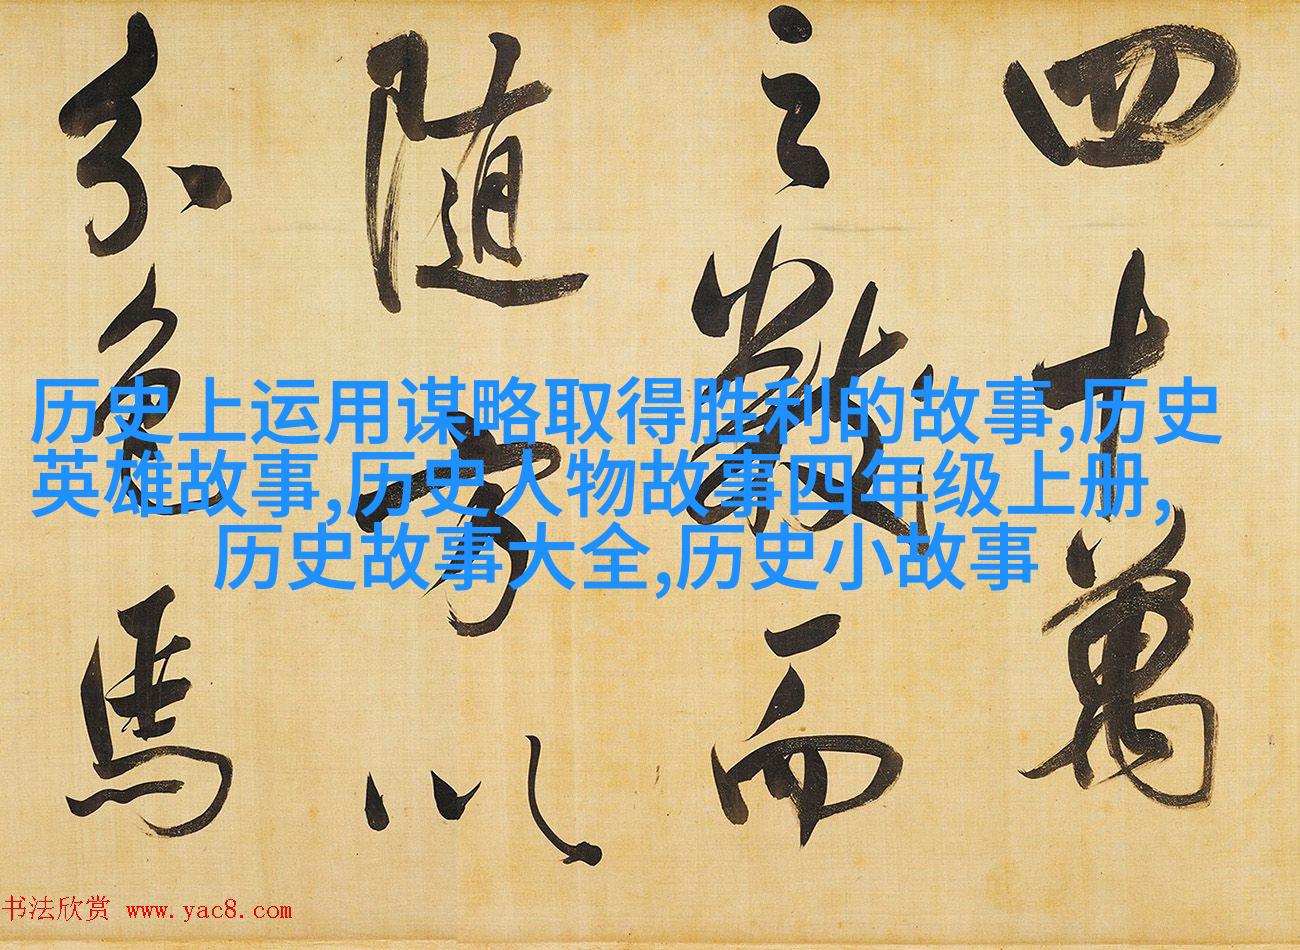 四十萬
之數而
随以
分色馬
历史上运用谋略取得胜利的故事,历史
英雄故事,历史人物故事四年级上册,
历史故事大全,历史小故事
书法欣赏 www.yac8.com